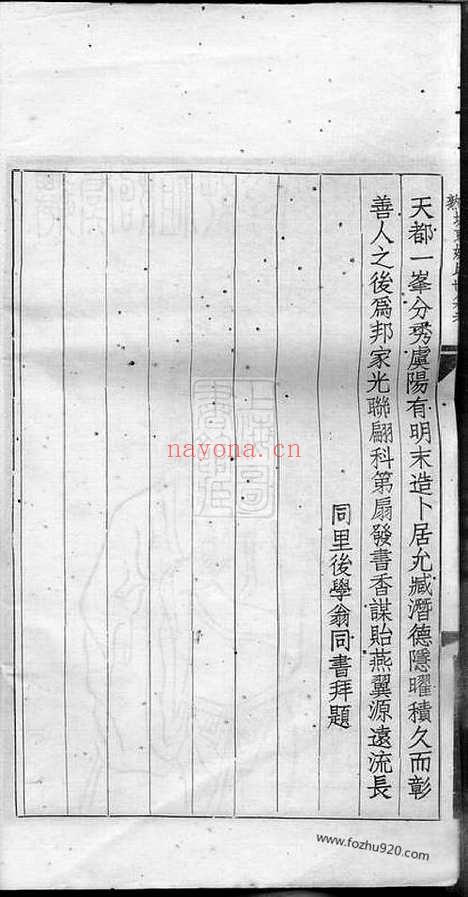 天都一峯分秀虞陽有明末造卜居允臧潛德隱曜積久而彰
善人之後爲邦家光聯翩科第扇發書香謀貽燕翼源遠流長
同里後學翁同書拜題
nayona.cn
www.fozhu920.com